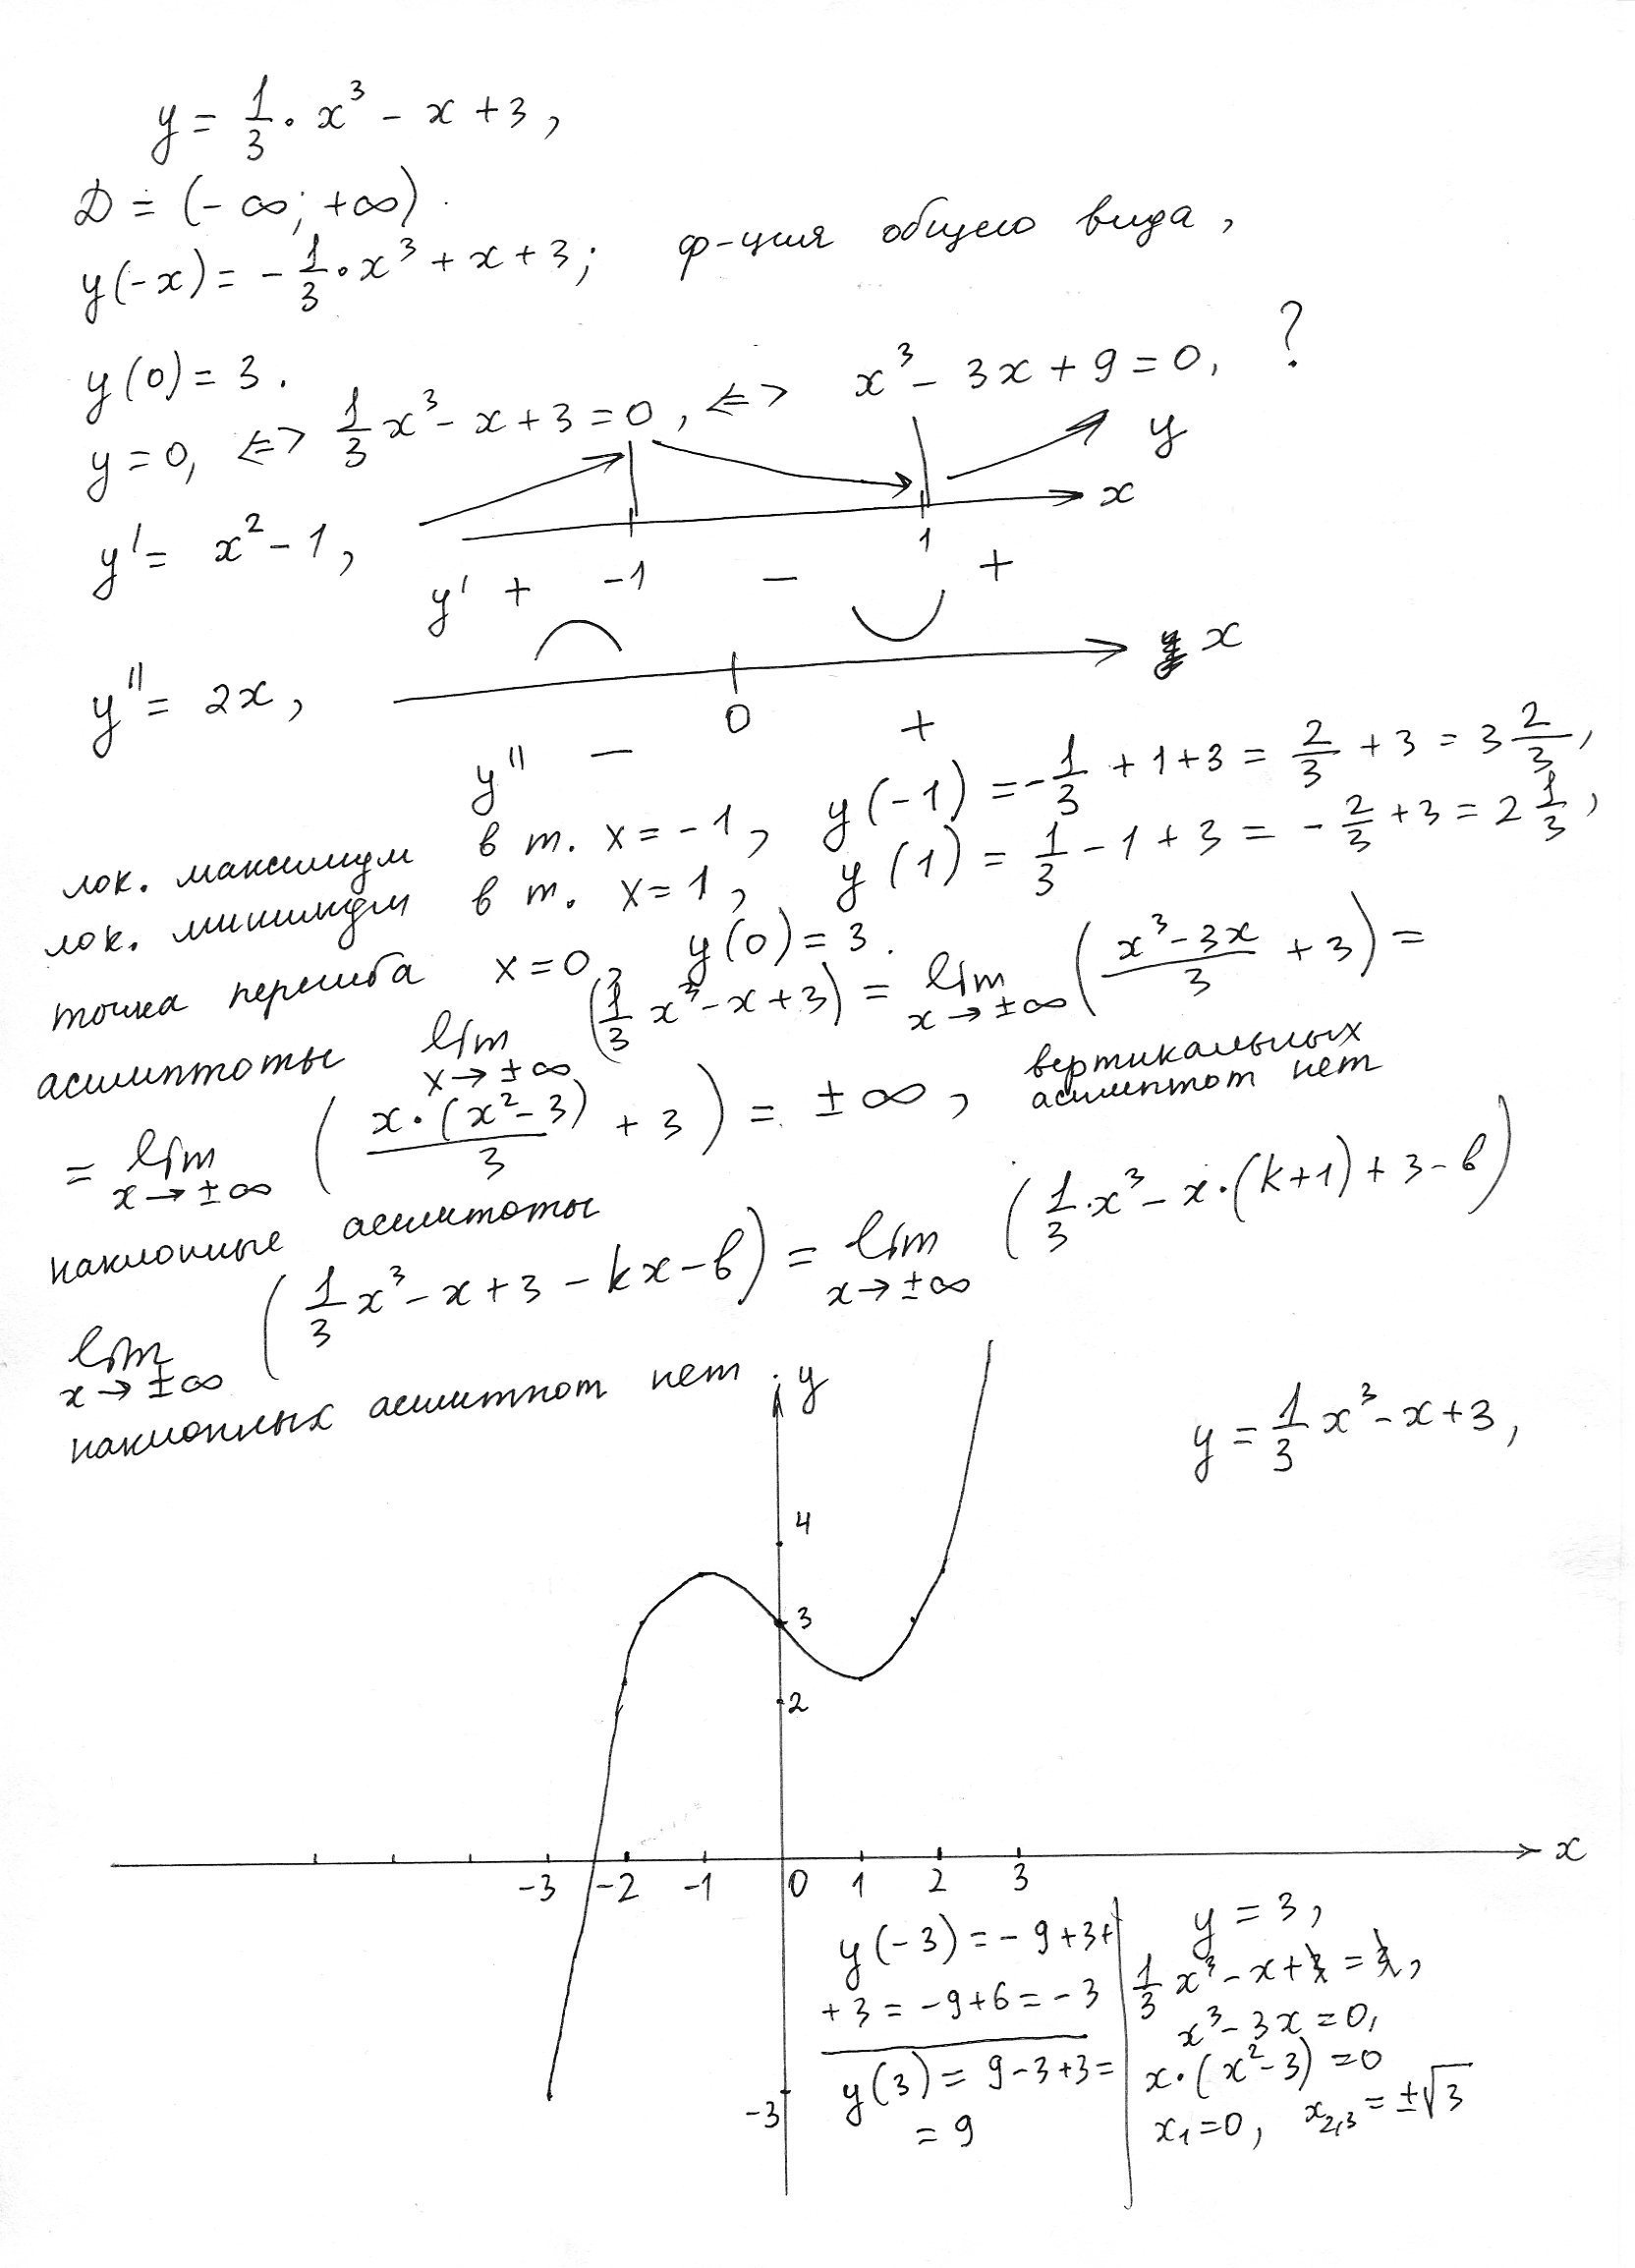 y = 1/3 · x³ - x + 3,
D = (-∞; +∞).
y(-x) = - 1/3 · x³ + x + 3; ф-ция общего вида,
y(0) = 3.
y = 0, <=> 1/3 x³ - x + 3 = 0, <=> x³ - 3x + 9 = 0, ?
y
x
y' = x² - 1,
-1 1
y' + - +
y'' = 2x,
x
0
y'' - +
лок. максимум в т. x = -1, y(-1) = - 1/3 + 1 + 3 = 2/3 + 3 = 3 2/3,
лок. минимум в т. x = 1, y(1) = 1/3 - 1 + 3 = - 2/3 + 3 = 2 1/3,
точка перегиба x = 0, y(0) = 3.
асимптоты lim x→±∞ (1/3 x³ - x + 3) = lim x→±∞ ((x³ - 3x)/3 + 3) =
= lim x→±∞ (x·(x² - 3)/3 + 3) = ±∞, вертикальных
асимптот нет
наклонные асимптоты
lim x→±∞ (1/3 x³ - x + 3 - kx - b) = lim x→±∞ (1/3 · x³ - x·(k+1) + 3 - b)
наклонных асимптот нет.
y
y = 1/3 x³ - x + 3,
4
3
2
x
-3 -2 -1 0 1 2 3
-3
y(-3) = -9+3+
+3 = -9+6 = -3
y(3) = 9-3+3=
= 9
y = 3,
1/3 x³ - x + 3 = 3,
x³ - 3x = 0,
x·(x² - 3) = 0
x₁ = 0, x₂,₃ = ±√3